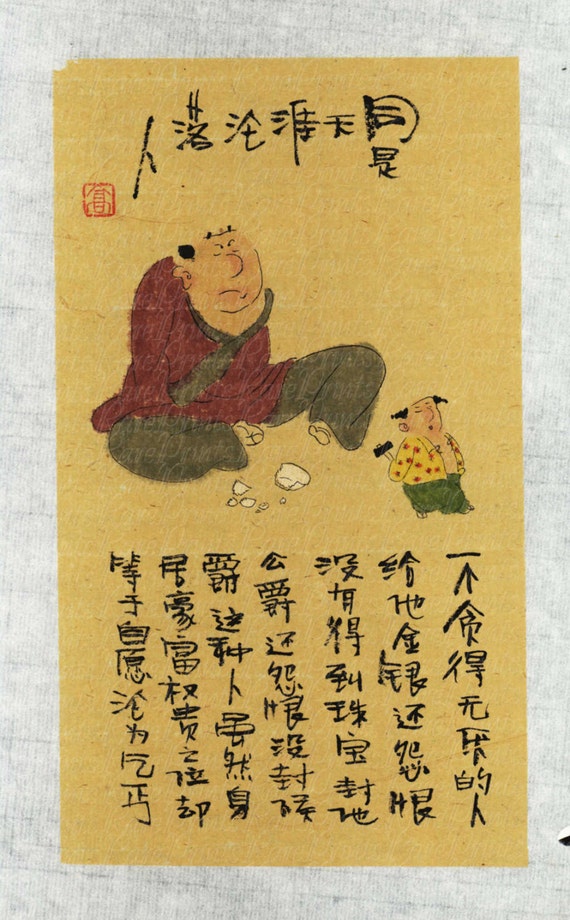 同是天涯沦落人
一个贪得无厌的人
给他金银还怨恨
没有得到珠宝封他
公爵还怨恨没封侯
爵这种人虽然身
居豪富权贵之位却
等于自愿沦为乞丐